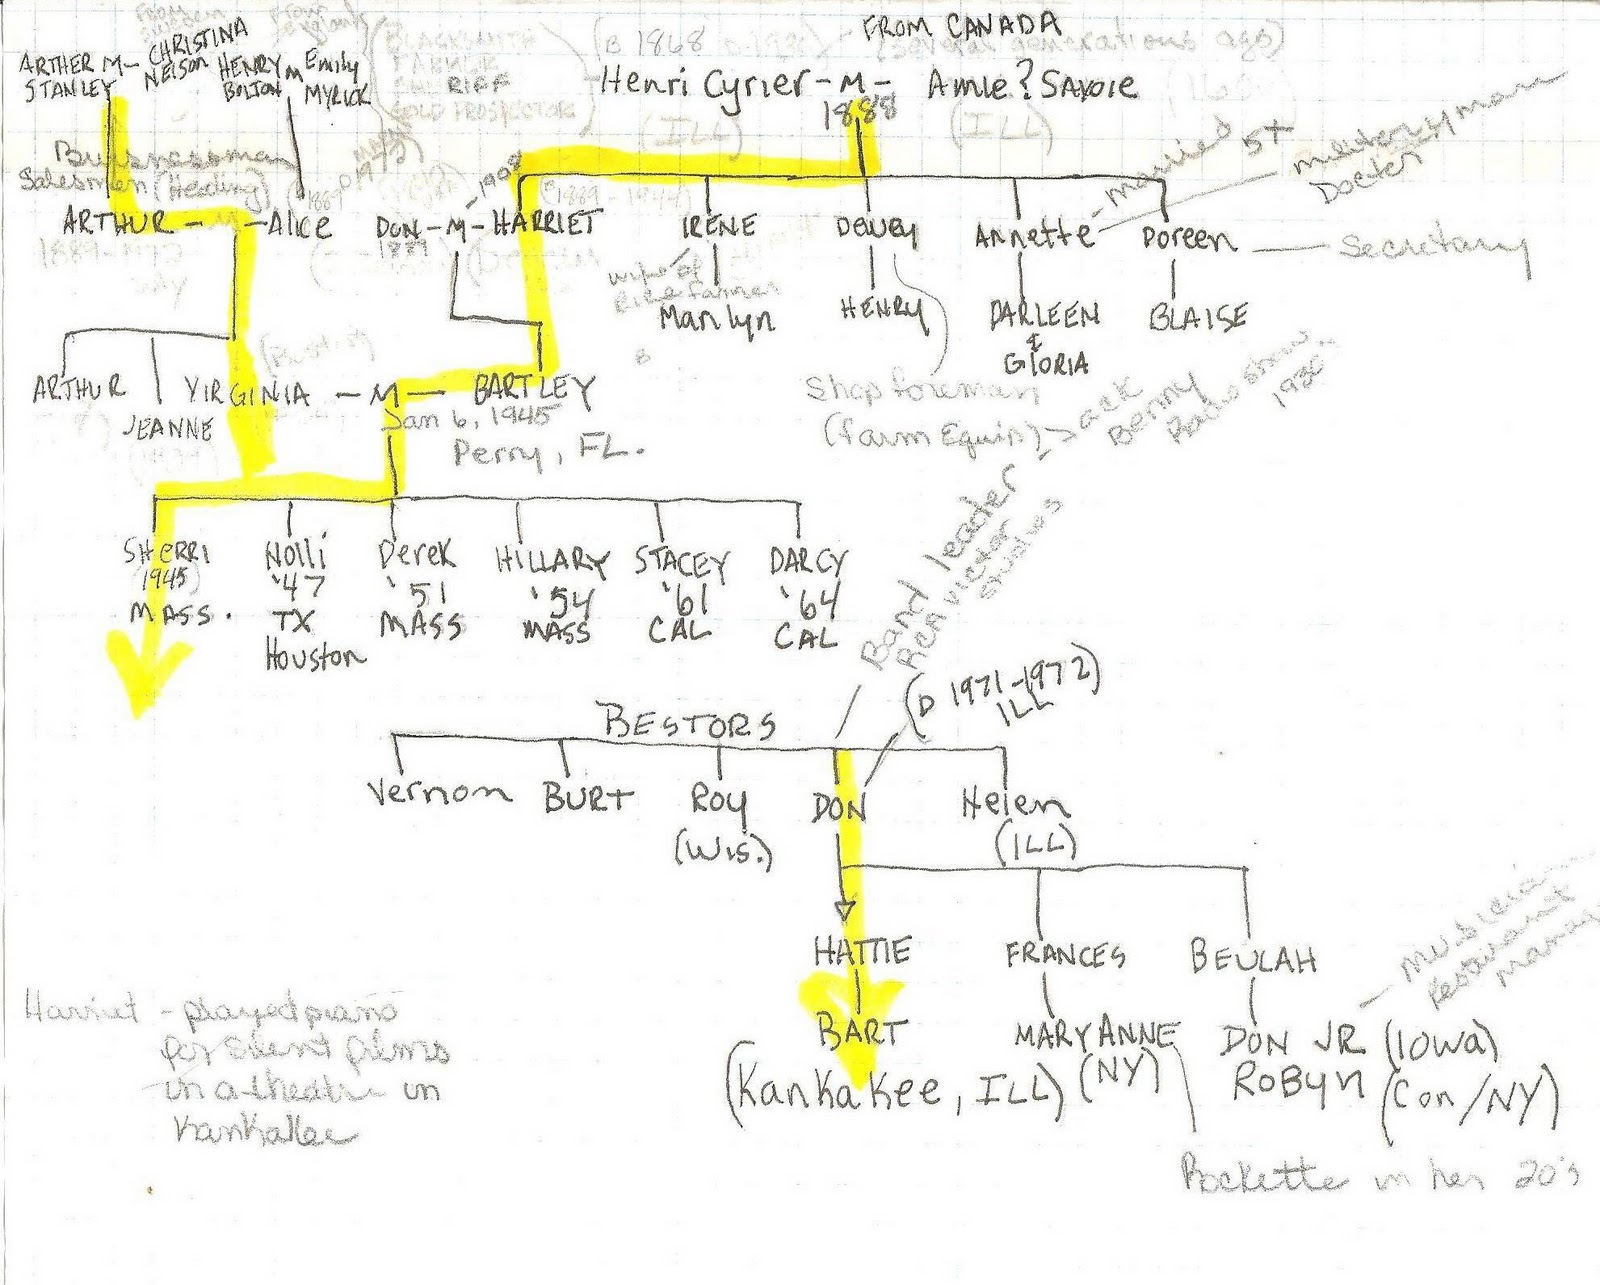 FROM CANADA
(several generations ago)
ARTHER M- CHRISTINA
STANLEY NELSON
HENRY M Emily
BOLTON MYRICK
BLACKSMITH
FARMER
SHERIFF
GOLD PROSPECTOR
(B 1868
Henri Cyrier - M - Amie? Savoie
1888
(ILL) (ILL)
Businessman
Salesman (Heading)
Married 5x
Military man
Doctor
ARTHUR - M - Alice
DON - M - HARRIET
1908
1889
(1889-1944)
IRENE
DEWEY
Annette
Doreen
Secretary
wife of
Rice farmer
Marilyn
HENRY
DARLEEN
&
GLORIA
BLAISE
ARTHUR
JEANNE
VIRGINIA - M - BARTLEY
Jan 6, 1945
Perry, FL.
Shop foreman
(farm Equip)
Jack
Benny
Radio show
SHERRI
(1945)
MASS.
Nolli
'47
TX
Houston
Derek
'51
MASS
HILLARY
'54
MASS
STACEY
'61
CAL
DARCY
'64
CAL
Band leader
RCA Victor
Studios
(D 1971-1972)
ILL
BESTORS
Vernon
BURT
Roy
(Wis.)
DON
Helen
(ILL)
HATTIE
FRANCES
BEULAH
BART
(KanKaKee, ILL)
MARY ANNE
(NY)
DON JR (Iowa)
ROBYN (Con/NY)
Musician
Restaurant
Manager
Rockette in her 20's
Harriet - played piano
for silent films
in a theatre in
Kankakee